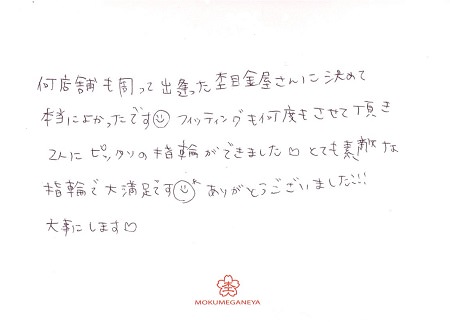 何店舗も周って出逢った杢目金屋さんに決めて
本当によかったです☺ フィッティングも何度もさせて頂き
2人にピッタリの指輪ができました♡ とても素敵な
指輪で大満足です☺ ありがとうございました!!!
大事にします♡
MOKUMEGANEYA